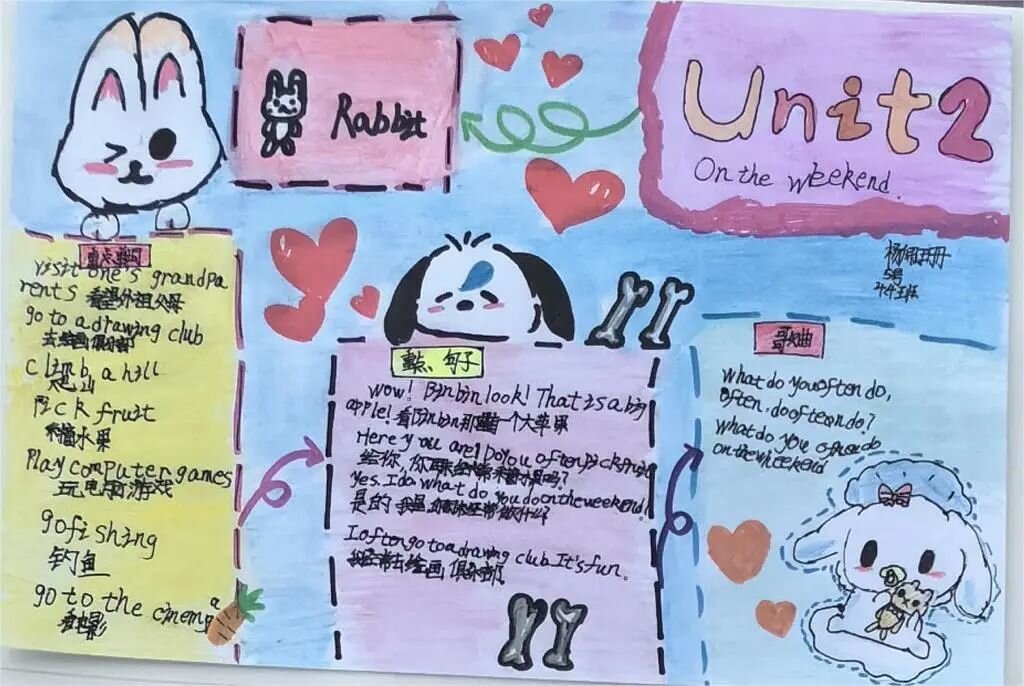 Rabbit
Unit2
On the weekend.
杨
5号
44班
重点
visit one's grandpa
rents 看望外祖父母
go to a drawing club
去绘画俱乐部
climb a hill
山
Pick fruit
摘水果
Play computer games
玩电脑游戏
go fishing
钓鱼
go to the cinema
看电影
重点、句子
wow! Binbin look! That is a big
apple! 看Binbin那是一个大苹果
Here you are! Do you often pick fruit
给你,你经常摘水果吗?
yes. I do what do you do on the weekend!
是的 我是 你经常做什么
I often go to a drawing club. It's fun.
我经常去绘画俱乐部。
歌曲
what do you often do,
often, do ofteon do?
what do you do
on the weekend